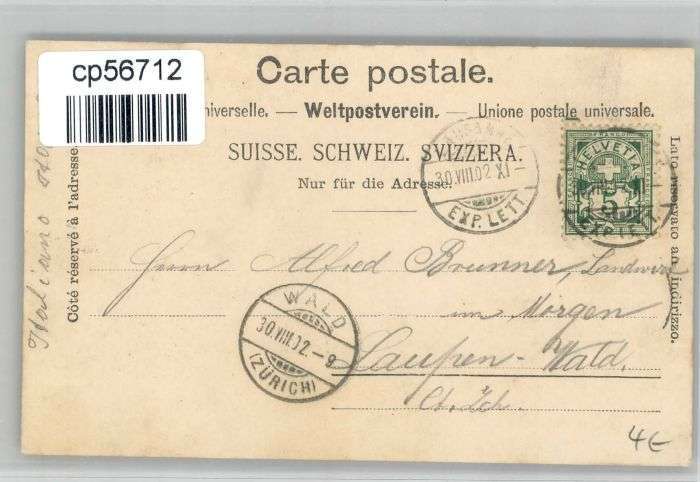 cp56712
Carte postale.
niverselle. — Weltpostverein. — Unione postale universale.
SUISSE. SCHWEIZ. SVIZZERA.
Nur für die Adresse.
Côté réservé à l'adresse.
Lato riservato all'indirizzo.
30.VIII.02 XI–
EXP. LETT.
FRANCO
HELVETIA
5
EXP. LETT.
Herrn Alfred Brunner, Landwirt
im Morgen
Laupen-Wald.
Ct. Zch.
WALD
30.VIII.02.–9
(ZÜRICH)
Italiano
4€